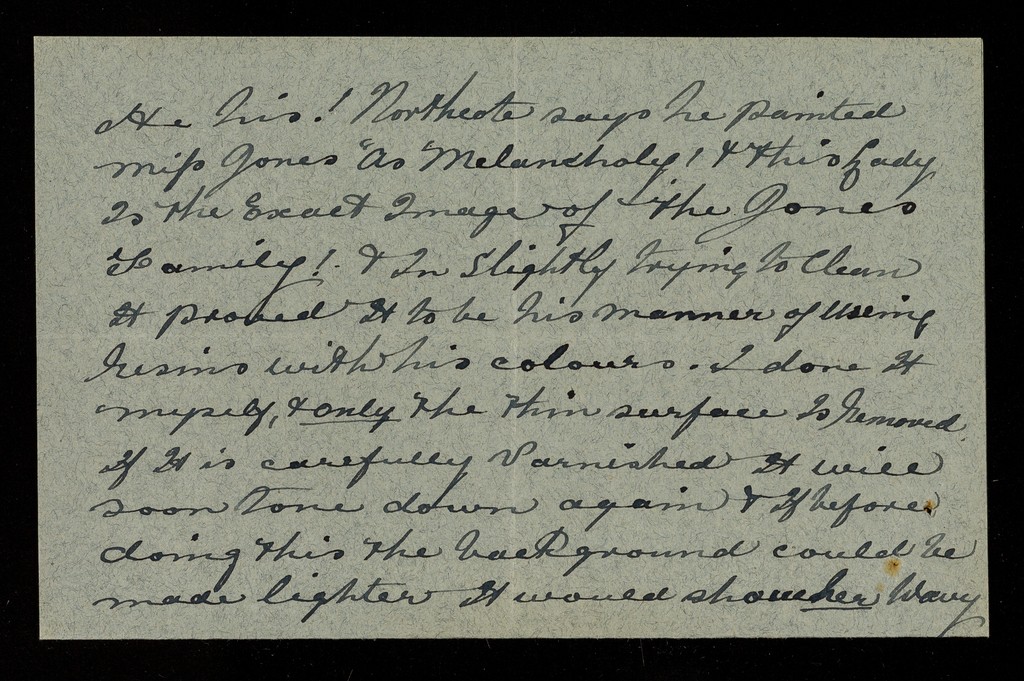 He his! Northcote says he painted
Miss Jones "As "Melancholy! & this Lady
Is the Exact Image of "the Jones
Family! & In Slightly trying to Clean
It proved It to be his manner of Using
resins with his colours. I done It
myself, & only the thin surface Is removed.
If It is carefully Varnished It will
soon tone down again & If before
doing this the background could be
made lighter It would show her Wavy